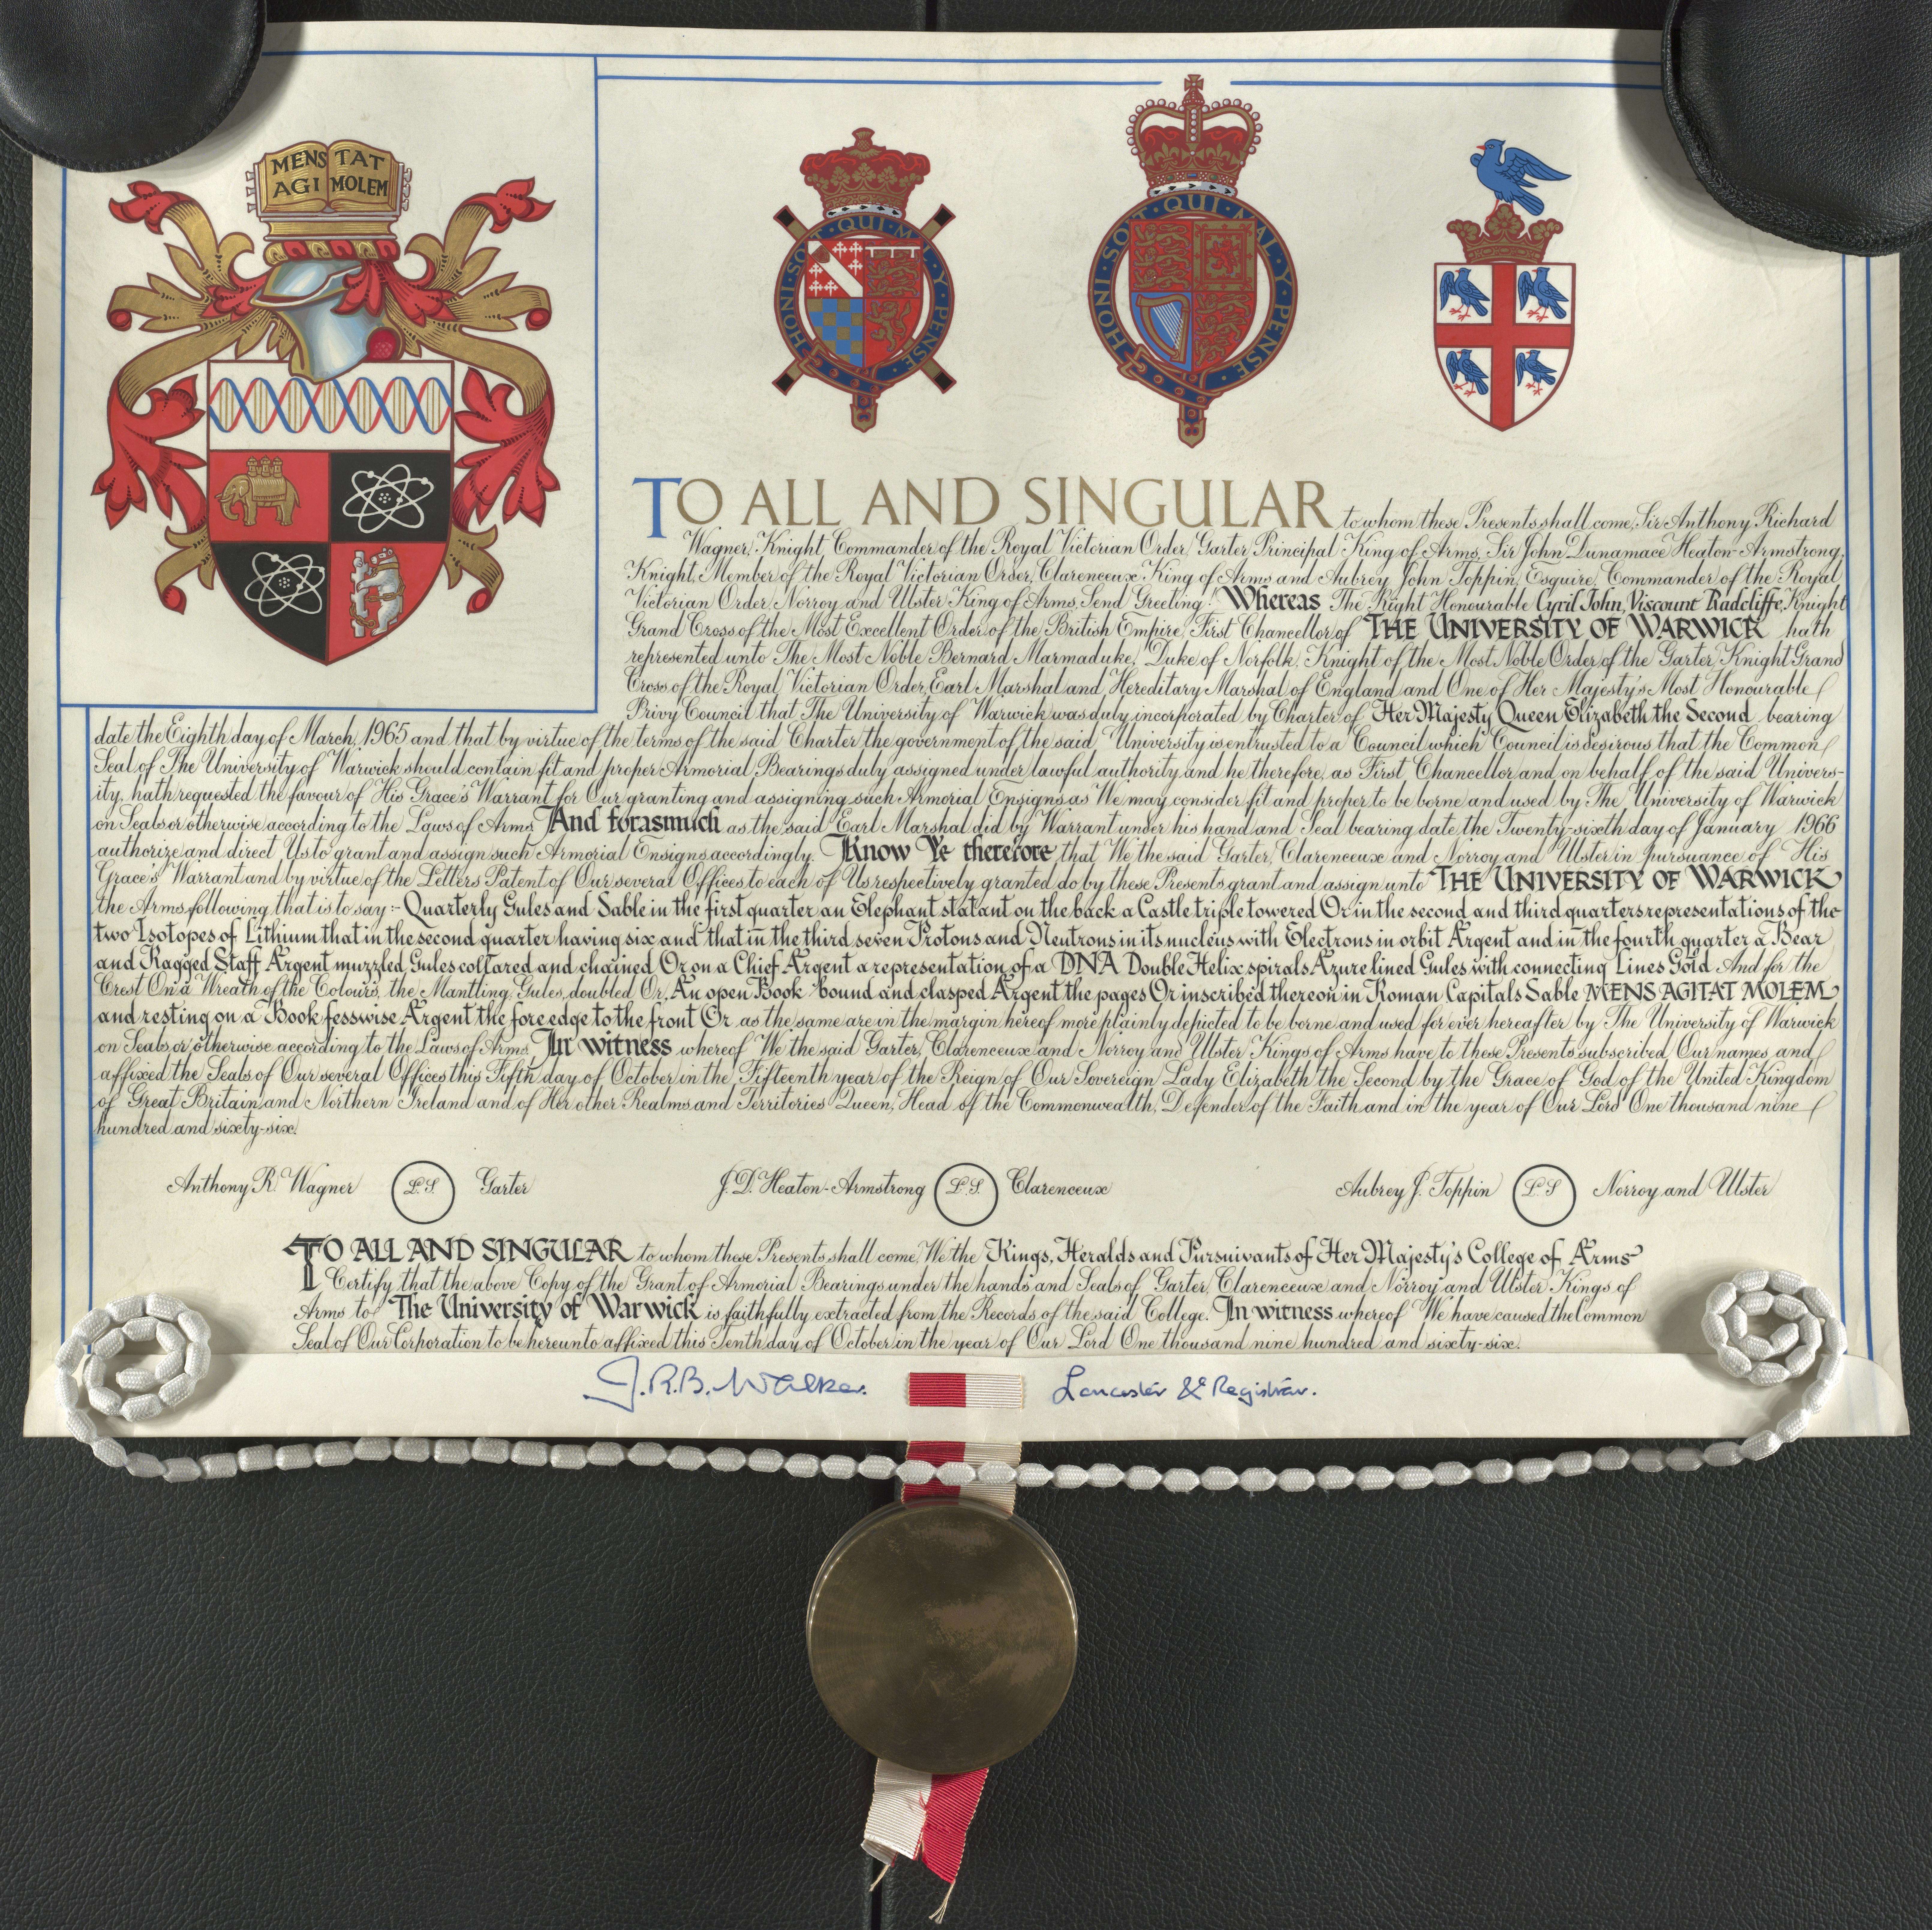 MENS TAT
AGI MOLEM
HONI · SOIT · QUI · MAL · Y · PENSE
HONI · SOIT · QUI · MAL · Y · PENSE
TO ALL AND SINGULAR to whom these Presents shall come, Sir Anthony Richard
Wagner, Knight Commander of the Royal Victorian Order, Garter Principal King of Arms, Sir John Dunamace Heaton-Armstrong,
Knight, Member of the Royal Victorian Order, Clarenceux King of Arms and Aubrey John Toppin, Esquire, Commander of the Royal
Victorian Order, Norroy and Ulster King of Arms, Send Greeting! Whereas The Right Honourable Cyril John, Viscount Radcliffe, Knight
Grand Cross of the Most Excellent Order of the British Empire, First Chancellor of THE UNIVERSITY OF WARWICK hath
represented unto The Most Noble Bernard Marmaduke, Duke of Norfolk, Knight of the Most Noble Order of the Garter, Knight Grand
Cross of the Royal Victorian Order, Earl Marshal and Hereditary Marshal of England and One of Her Majesty's Most Honourable
Privy Council that The University of Warwick was duly incorporated by Charter of Her Majesty Queen Elizabeth the Second bearing
date the Eighth day of March, 1965 and that by virtue of the terms of the said Charter the government of the said University is entrusted to a Council which Council is desirous that the Common
Seal of The University of Warwick should contain fit and proper Armorial Bearings duly assigned under lawful authority and he therefore, as First Chancellor and on behalf of the said Univers-
ity, hath requested the favour of His Grace's Warrant for Our granting and assigning such Armorial Ensigns as We may consider fit and proper to be borne and used by The University of Warwick
on Seals or otherwise according to the Laws of Arms. And forasmuch as the said Earl Marshal did by Warrant under his hand and Seal bearing date the Twenty-sixth day of January 1966
authorize and direct Us to grant and assign such Armorial Ensigns accordingly. Know Ye therefore that We the said Garter, Clarenceux and Norroy and Ulster in pursuance of His
Grace's Warrant and by virtue of the Letters Patent of Our several Offices to each of Us respectively granted do by these Presents grant and assign unto THE UNIVERSITY OF WARWICK
the Arms following that is to say :- Quarterly Gules and Sable in the first quarter an Elephant statant on the back a Castle triple towered Or in the second and third quarters representations of the
two Isotopes of Lithium that in the second quarter having six and that in the third seven Protons and Neutrons in its nucleus with Electrons in orbit Argent and in the fourth quarter a Bear
and Ragged Staff Argent muzzled Gules collared and chained Or on a Chief Argent a representation of a DNA Double Helix spirals Azure lined Gules with connecting Lines Gold And for the
Crest On a Wreath of the Colours, the Mantling Gules, doubled Or, An open Book bound and clasped Argent the pages Or inscribed thereon in Roman Capitals Sable MENS AGITAT MOLEM
and resting on a Book fesswise Argent the fore edge to the front Or as the same are in the margin hereof more plainly depicted to be borne and used for ever hereafter by The University of Warwick
on Seals, or otherwise according to the Laws of Arms. In witness whereof We the said Garter, Clarenceux and Norroy and Ulster Kings of Arms have to these Presents subscribed Our names and
affixed the Seals of Our several Offices this Fifth day of October in the Fifteenth year of the Reign of Our Sovereign Lady Elizabeth the Second by the Grace of God of the United Kingdom
of Great Britain and Northern Ireland and of Her other Realms and Territories Queen, Head of the Commonwealth, Defender of the Faith and in the year of Our Lord One thousand nine
hundred and sixty-six.
Anthony R. Wagner L.S. Garter J.D. Heaton-Armstrong L.S. Clarenceux Aubrey J. Toppin L.S Norroy and Ulster
TO ALL AND SINGULAR to whom these Presents shall come, We the Kings, Heralds and Pursuivants of Her Majesty's College of Arms
Certify that the above Copy of the Grant of Armorial Bearings under the hands and Seals of Garter, Clarenceux and Norroy and Ulster Kings of
Arms to The University of Warwick is faithfully extracted from the Records of the said College. In witness whereof We have caused the Common
Seal of Our Corporation to be hereunto affixed this Tenth day of October in the year of Our Lord One thousand nine hundred and sixty-six.
J.R.B. Walker. Lancaster & Registrar.